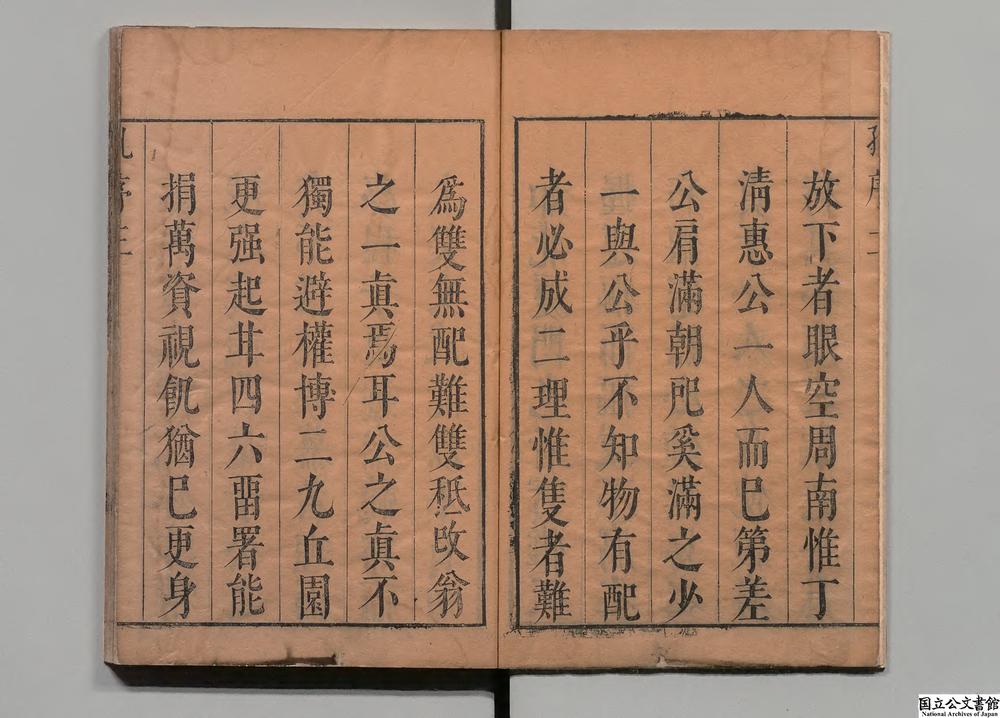 放下者眼空周南惟丁
清惠公一人而巳第差
公肩滿朝咫奚滿之少
一與公乎不知物有配
者必成二理惟隻者難
爲雙無配難雙秪攺翁
之一眞焉耳公之眞不
獨能避權博二九丘園
更强起廿四六畱署能
捐萬資視飢猶巳更身
国立公文書館
National Archives of Japan